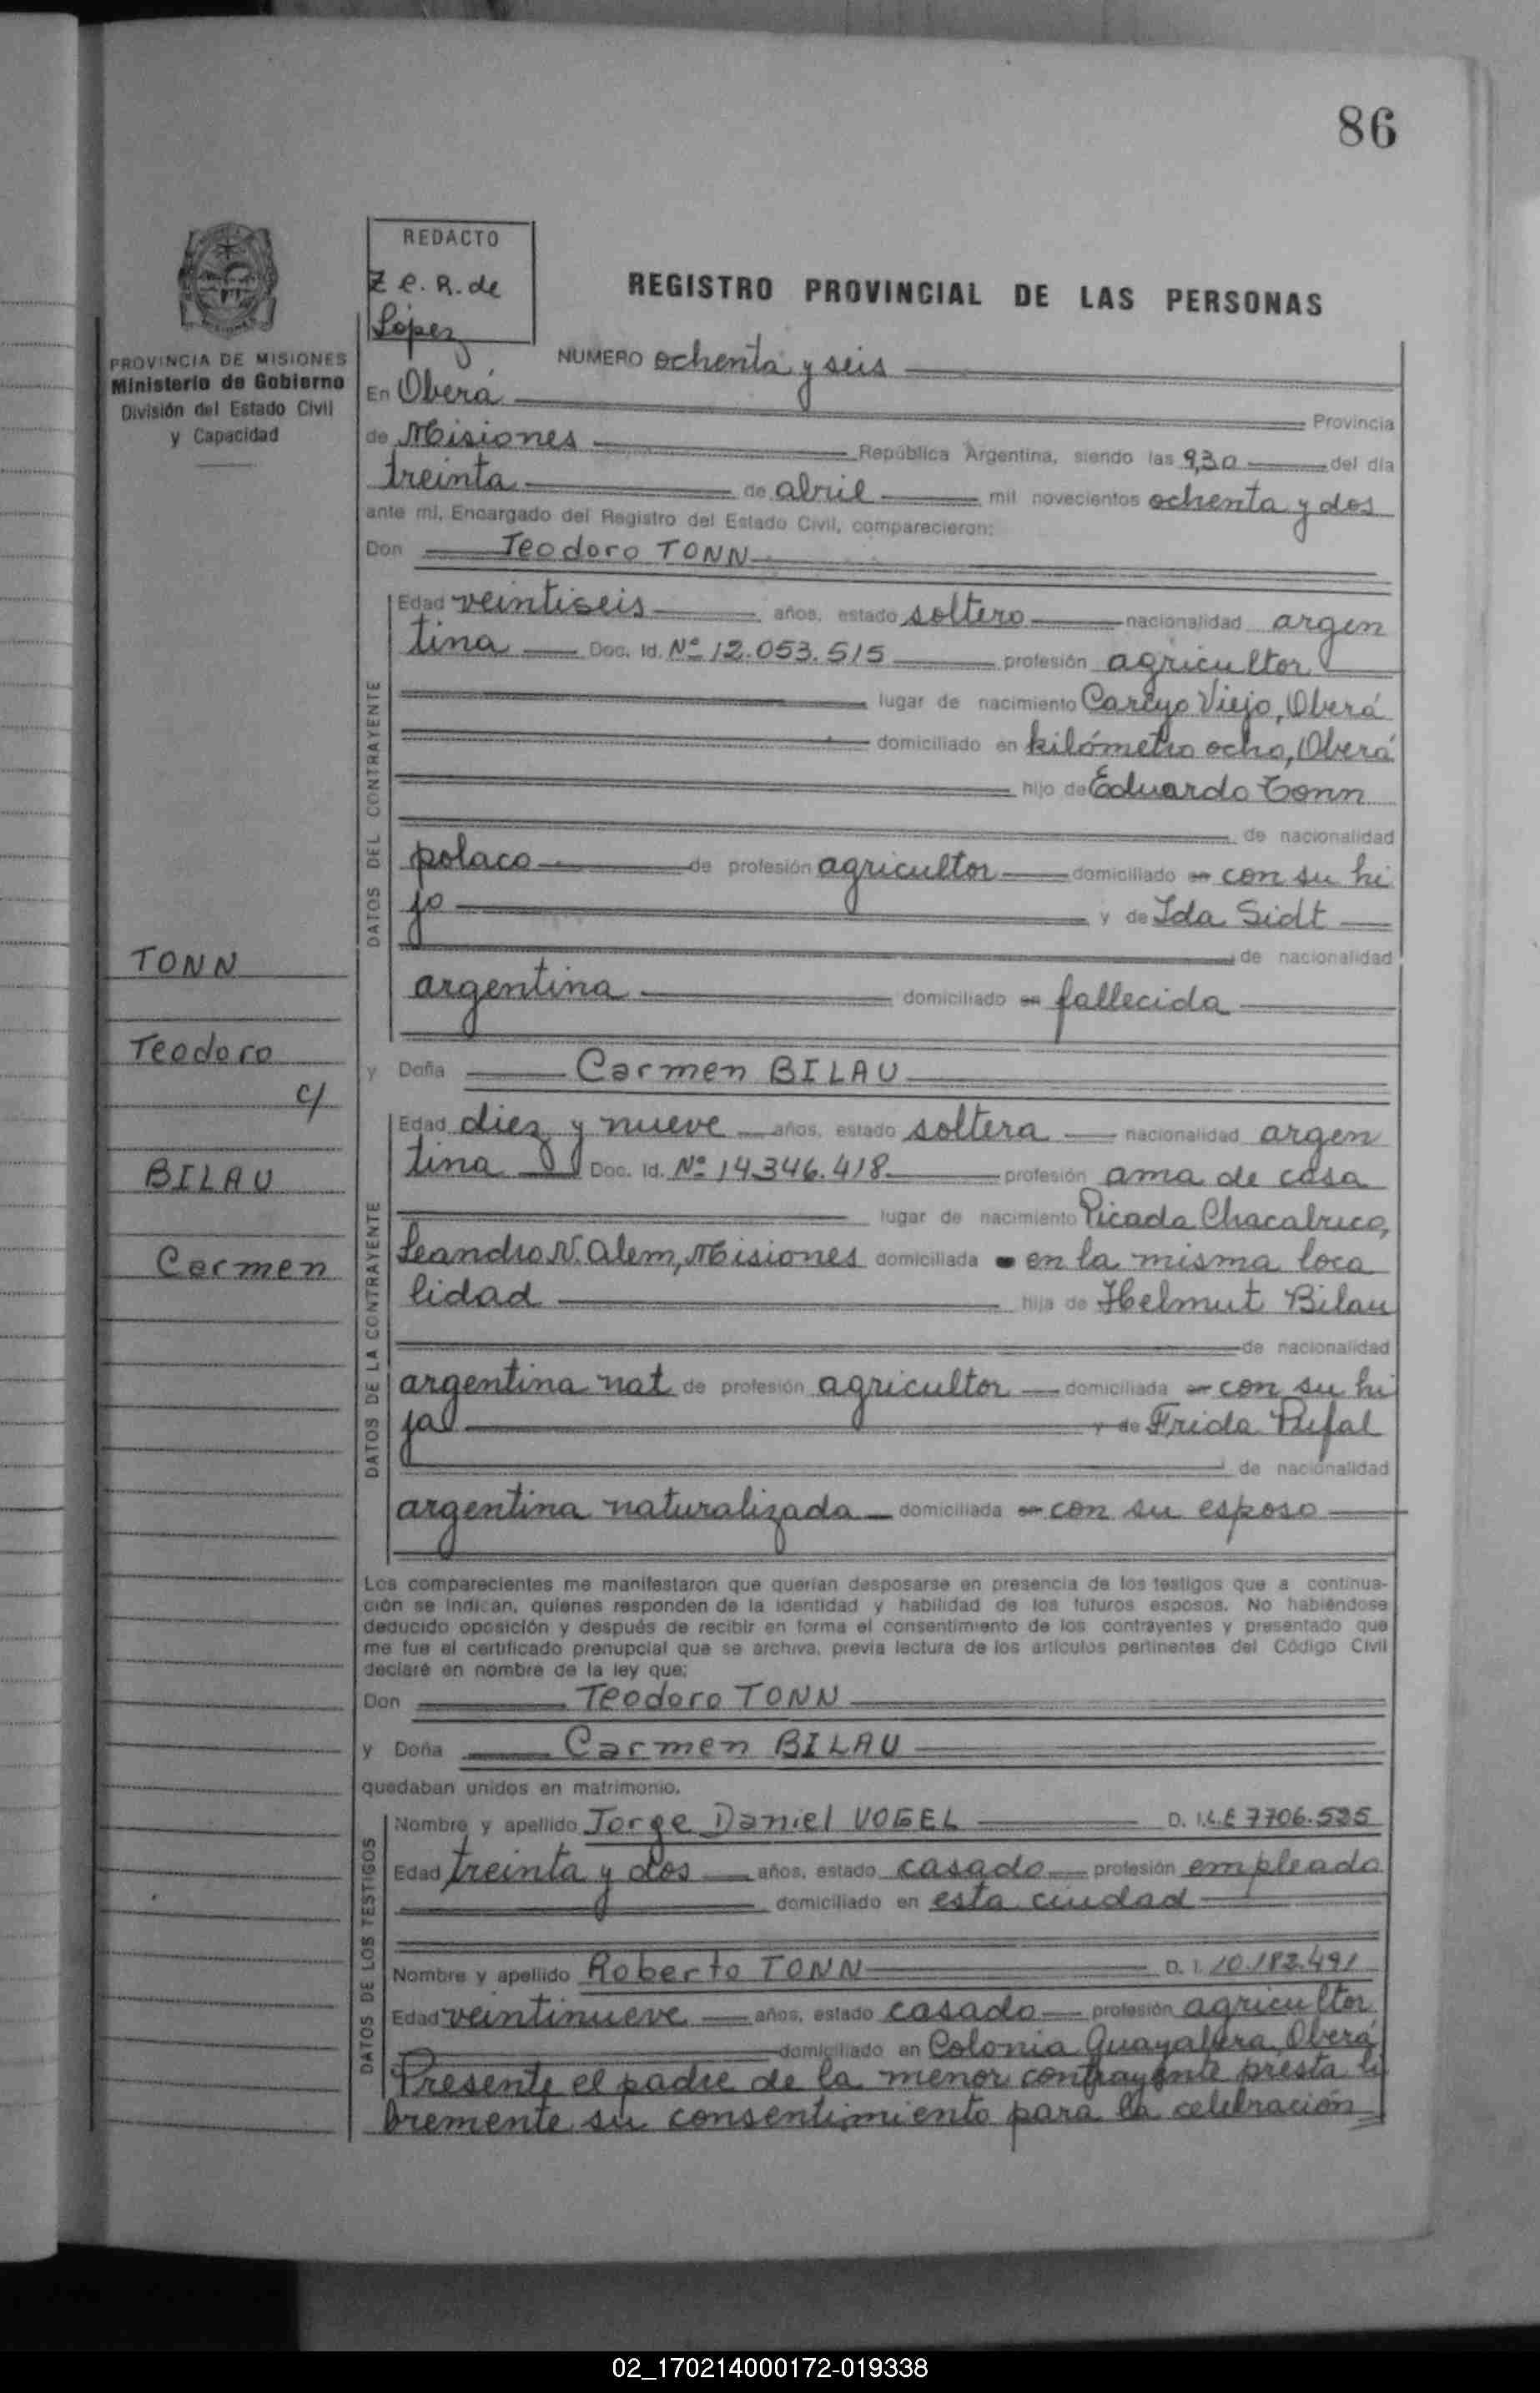 86
REDACTO
Z e. R. de
López
REGISTRO PROVINCIAL DE LAS PERSONAS
PROVINCIA DE MISIONES
Ministerio de Gobierno
División del Estado Civil
y Capacidad
NUMERO ochenta y seis
En Oberá
Provincia
de Misiones República Argentina, siendo las 9,30 del día
treinta de abril mil novecientos ochenta y dos
ante mí, Encargado del Registro del Estado Civil, comparecieron:
Don Teodoro TONN
DATOS DEL CONTRAYENTE
Edad veintiseis años, estado soltero nacionalidad argen
tina Doc. Id. Nº 12.053.515 profesión agricultor
lugar de nacimiento Viejo, Oberá
domiciliado en kilómetro ocho, Oberá
hijo de Eduardo Tonn
de nacionalidad
polaco de profesión agricultor domiciliado en con su hi
jo y de Ida Sidt
de nacionalidad
argentina domiciliado en fallecida
y Doña Carmen BILAU
TONN
Teodoro
c/
BILAU
Carmen
DATOS DE LA CONTRAYENTE
Edad diez y nueve años, estado soltera nacionalidad argen
tina Doc. Id. Nº 14.346.418 profesión ama de casa
lugar de nacimiento Picada Chacabuco,
Leandro N. Alem, Misiones domiciliada en la misma loca
lidad hija de Helmut Bilau
de nacionalidad
argentina nat de profesión agricultor domiciliada en con su hi
ja y de Frida Pufal
de nacionalidad
argentina naturalizada domiciliada en con su esposo
Los comparecientes me manifestaron que querían desposarse en presencia de los testigos que a continua-
ción se indican, quienes responden de la identidad y habilidad de los futuros esposos. No habiéndose
deducido oposición y después de recibir en forma el consentimiento de los contrayentes y presentado que
me fue el certificado prenupcial que se archiva, previa lectura de los artículos pertinentes del Código Civil
declaré en nombre de la ley que:
Don Teodoro TONN
y Doña Carmen BILAU
quedaban unidos en matrimonio.
DATOS DE LOS TESTIGOS
Nombre y apellido Jorge Daniel VOGEL D. I. L.E 7706.525
Edad treinta y dos años, estado casado profesión empleado
domiciliado en esta ciudad
Nombre y apellido Roberto TONN D. I. 10.182.491
Edad veintinueve años, estado casado profesión agricultor
domiciliado en Colonia Guayabera, Oberá
Presente el padre de la menor contrayente presta li
bremente su consentimiento para la celebración
02_170214000172-019338